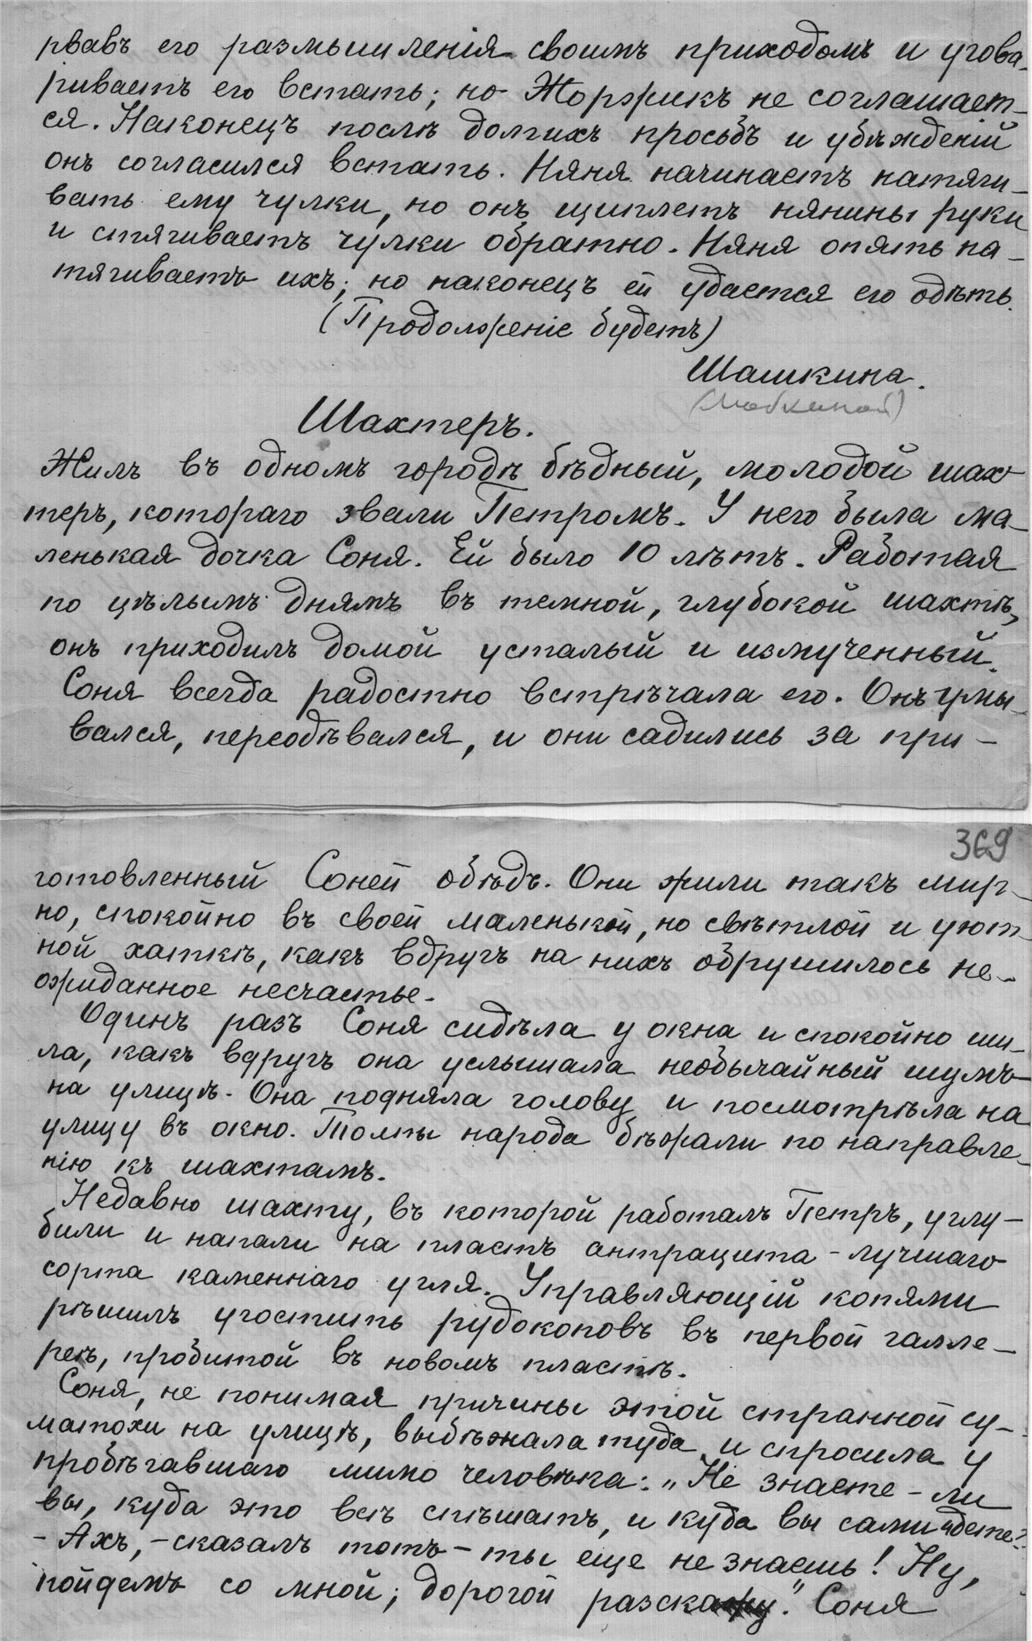 рвавъ его размышленія своимъ приходомъ и угова-
риваетъ его встать; но Жоржикъ не соглашает-
ся. Наконецъ послѣ долгихъ просьбъ и убѣжденій
онъ согласился встать. Няня начинаетъ натяги-
вать ему чулки, но онъ щиплетъ нянины руки
и стягиваетъ чулки обратно. Няня опять на-
тягиваетъ ихъ; но наконецъ ей удается его одѣть.
(Продолженіе будетъ)
Шашкина.
Шахтеръ.
Жилъ въ одномъ городѣ бѣдный, молодой шах-
теръ, котораго звали Петромъ. У него была ма-
ленькая дочка Соня. Ей было 10 лѣтъ. Работая
по цѣлымъ днямъ въ темной, глубокой шахтѣ,
онъ приходилъ домой усталый и измученный.
Соня всегда радостно встрѣчала его. Онъ умы-
вался, переодѣвался, и они садились за при-
369
готовленный Соней обѣдъ. Они жили такъ мир-
но, спокойно въ своей маленькой, но свѣтлой и уют-
ной хаткѣ, какъ вдругъ на нихъ обрушилось не-
ожиданное несчастье.
Одинъ разъ Соня сидѣла у окна и спокойно ши-
ла, какъ вдругъ она услышала необычайный шумъ
на улицѣ. Она подняла голову и посмотрѣла на
улицу въ окно. Толпы народа бѣжали по направле-
нію къ шахтамъ.
Недавно шахту, въ которой работалъ Петръ, углу-
били и напали на пластъ антрацита - лучшаго
сорта каменнаго угля. Управляющій копями
рѣшилъ угостить рудокоповъ въ первой галле-
реѣ, пробитой въ новомъ пластѣ.
Соня, не понимая причины этой странной су-
матохи на улицѣ, выбѣжала туда и спросила у
пробѣгавшаго мимо человѣка: „Не знаете-ли
вы, куда это всѣ спѣшатъ, и куда вы сами идете?
- Ахъ, - сказалъ тотъ - ты еще не знаешь! Ну,
пойдемъ со мной; дорогой разскажу." Соня